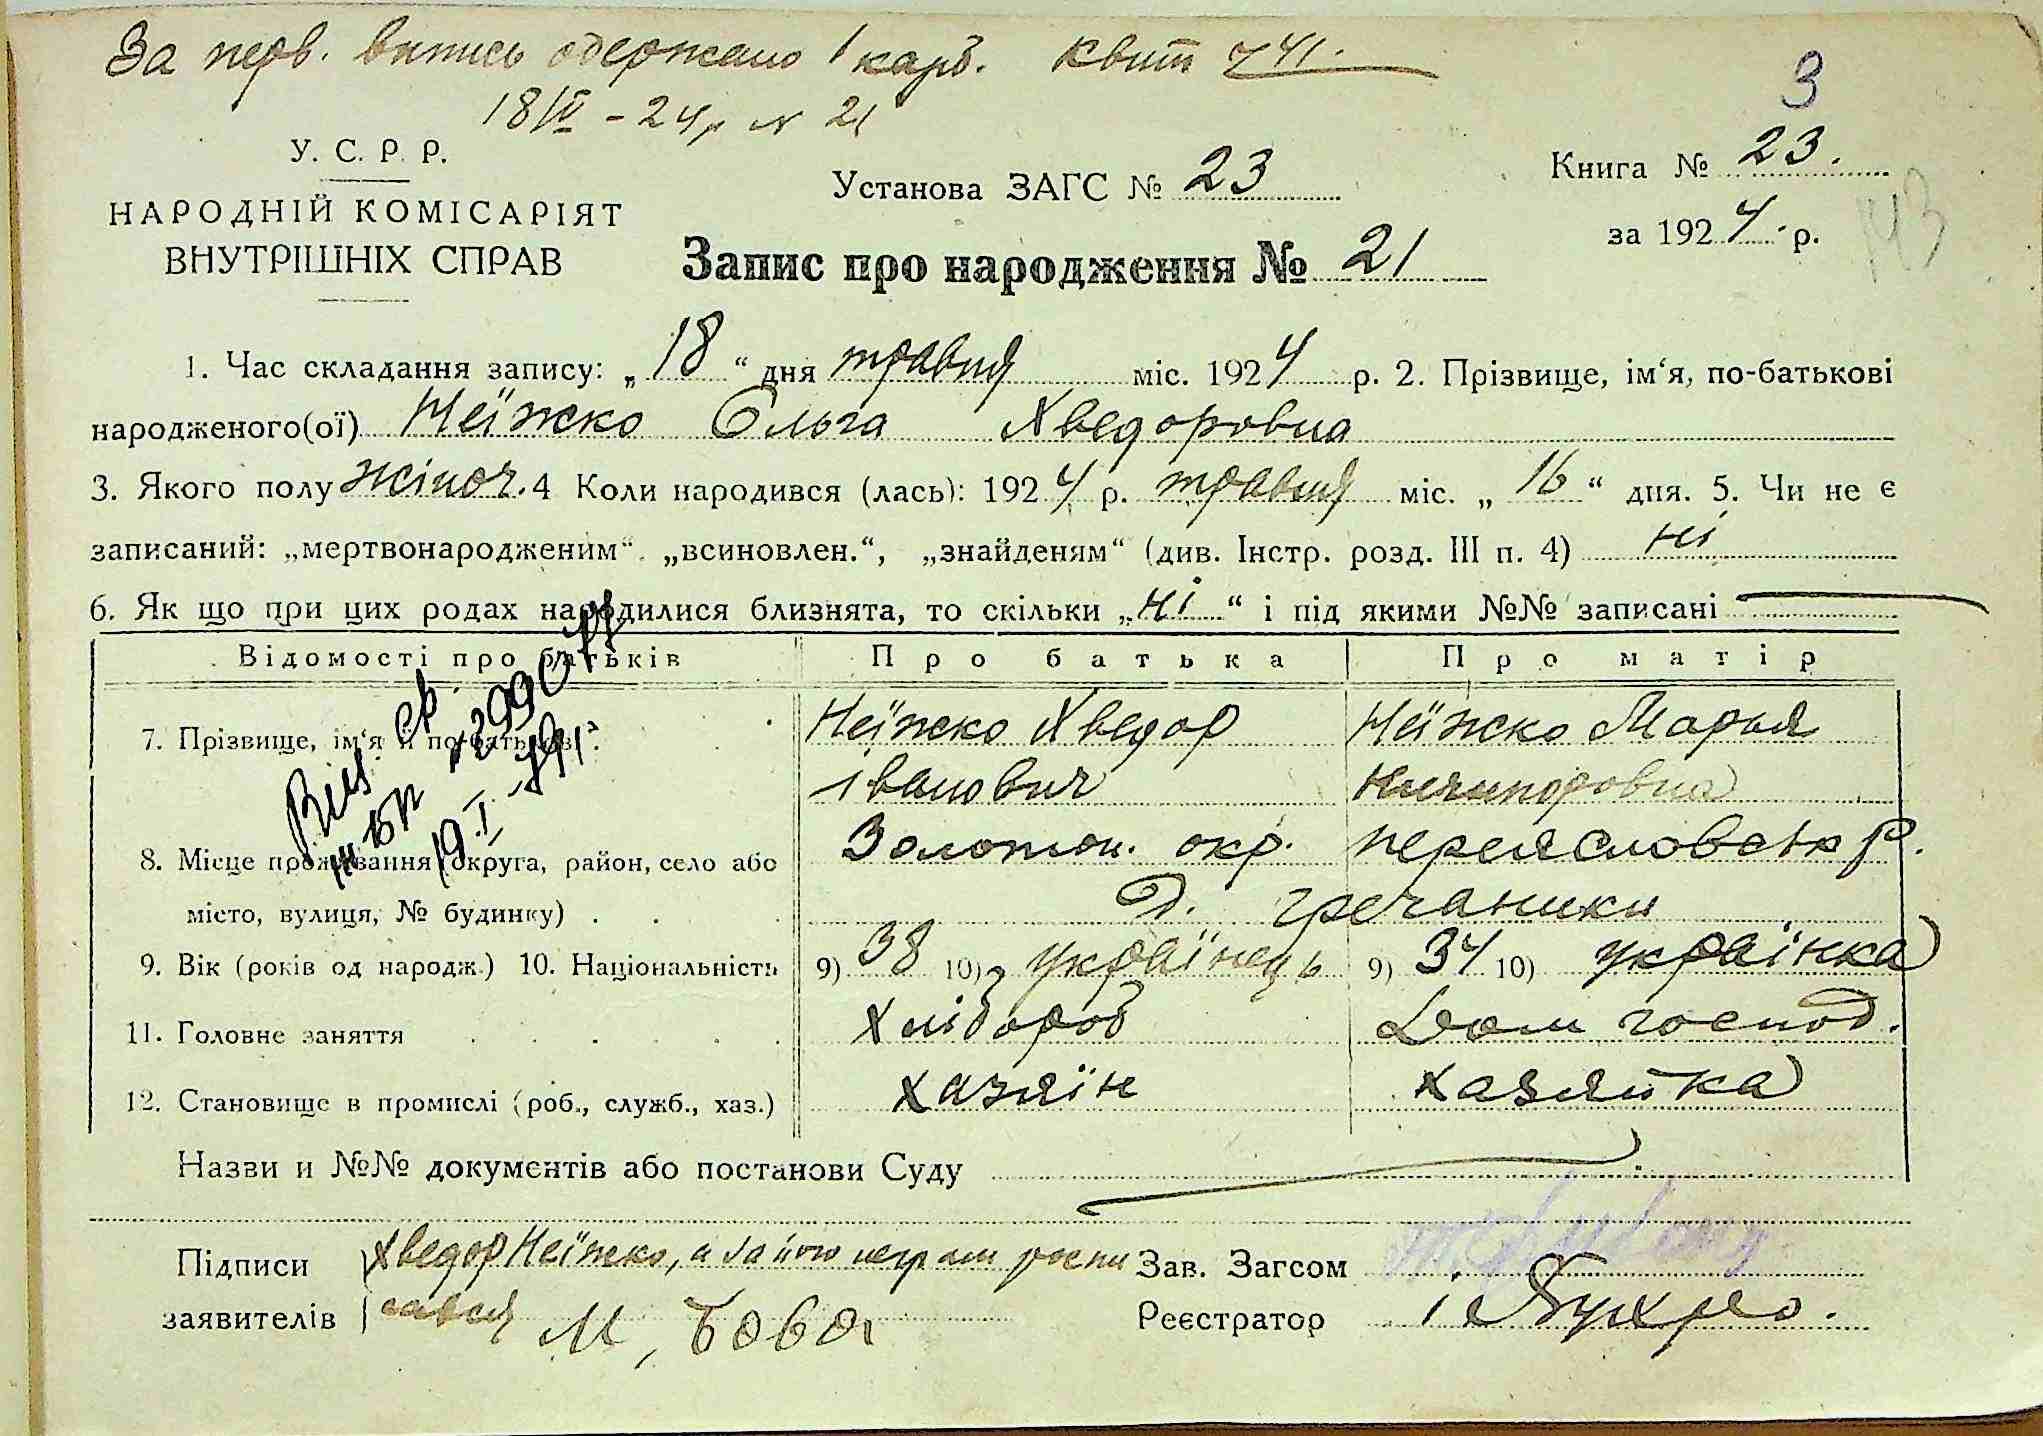 За перв. випись одержано 1 карб. квит 741.
18/IV - 24р N 21
3
У. С. Р. Р.
НАРОДНІЙ КОМІСАРІЯТ
ВНУТРІШНІХ СПРАВ
Установа ЗАГС № 23
Книга № 23.
за 1924 р.
143
Запис про народження № 21
1. Час складання запису: „18“ дня травня міс. 1924 р. 2. Прізвище, ім‘я, по-батькові
народженого(ої) Неїжко Ольга Хведоровна
3. Якого полу жіноч. 4 Коли народився (лась): 1924 р. травня міс. „16“ дня. 5. Чи не є
записаний: „мертвонародженим“. „всиновлен.“, „знайденям“ (див. Інстр. розд. III п. 4) ні
6. Як що при цих родах народилися близнята, то скільки „ні“ і під якими №№ записані
Відомості про батьків Про батька Про матір
7. Прізвище, ім‘я й по-батькові. Неїжко Хведор Неїжко Марья
Іванович Ничипоровна
8. Місце проживання (округа, район, село або Золотон. окр. переяславськ р.
місто, вулиця, № будинку) . . . д. гречаники
9. Вік (років од народж.) 10. Національність 9) 38 10) українець 9) 34 10) українка
11. Головне заняття . . . . . Хлібороб Дом господ.
12. Становище в промислі (роб., служб., хаз.) хазяїн хазяйка
19.I
Назви и №№ документів або постанови Суду
Підписи Хведор Неїжко, а за його неграм роспи Зав. Загсом
заявителів сався М, Бова Реєстратор